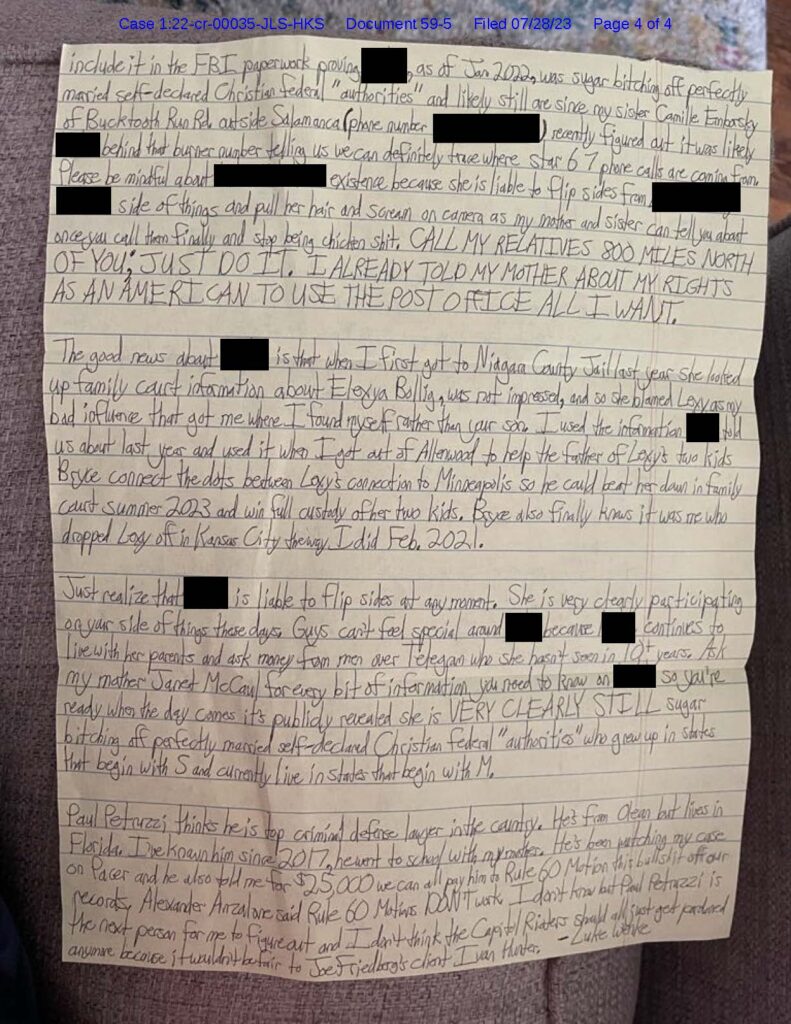 Case 1:22-cr-00035-JLS-HKS Document 59-5 Filed 07/28/23 Page 4 of 4
include it in the FBI paperwork proving , as of Jan 2022, was sugar bitching off perfectly
married self-declared Christian federal "authorities" and likely still are since my sister Camille Emborsky
of Bucktooth Run Rd. outside Salamanca (phone number ) recently figured out it was likely
behind that burner number telling us we can definitely trace where star 67 phone calls are coming from.
Please be mindful about existence because she is liable to flip sides from
side of things and pull her hair and scream on camera as my mother and sister can tell you about
once you call them finally and stop being chicken shit. CALL MY RELATIVES 800 MILES NORTH
OF YOU; JUST DO IT. I ALREADY TOLD MY MOTHER ABOUT MY RIGHTS
AS AN AMERICAN TO USE THE POST OFFICE ALL I WANT.
The good news about is that when I first got to Niagara County Jail last year she looked
up family court information about Elexya Bollig, was not impressed, and so she blamed Lexy as my
bad influence that got me where I found myself rather than your son. I used the information told
us about last year and used it when I got out of Allenwood to help the father of Lexy's two kids
Bryce connect the dots between Lexy's connection to Minneapolis so he could beat her down in family
court summer 2023 and win full custody of her two kids. Bryce also finally knows it was me who
dropped Lexy off in Kansas City the way I did Feb. 2021.
Just realize that is liable to flip sides at any moment. She is very clearly participating
on your side of things these days. Guys can't feel special around because continues to
live with her parents and ask money from men over Telegan who she hasn't seen in 10+ years. Ask
my mother Janet McCaul for every bit of information you need to know on so you're
ready when the day comes it's publicly revealed she is VERY CLEARLY STILL sugar
bitching off perfectly married self-declared Christian federal "authorities" who grew up in states
that begin with S and currently live in states that begin with M.
Paul Petruzzi thinks he is top criminal defense lawyer in the country. He's from Olean but lives in
Florida. I've known him since 2017, he went to school with my mother. He's been watching my case
on Pacer and he also told me for $25,000 we can all pay him to Rule 60 Motion this bullshit off our
records, Alexander Anzalone said Rule 60 Motions DON'T work. I don't know but Paul Petruzzi is
the next person for me to figure out and I don't think the Capitol Rioters should all just get pardoned
anymore because it wouldn't be fair to Joe Friedberg's client Ivan Hunter. - Luke Wenke